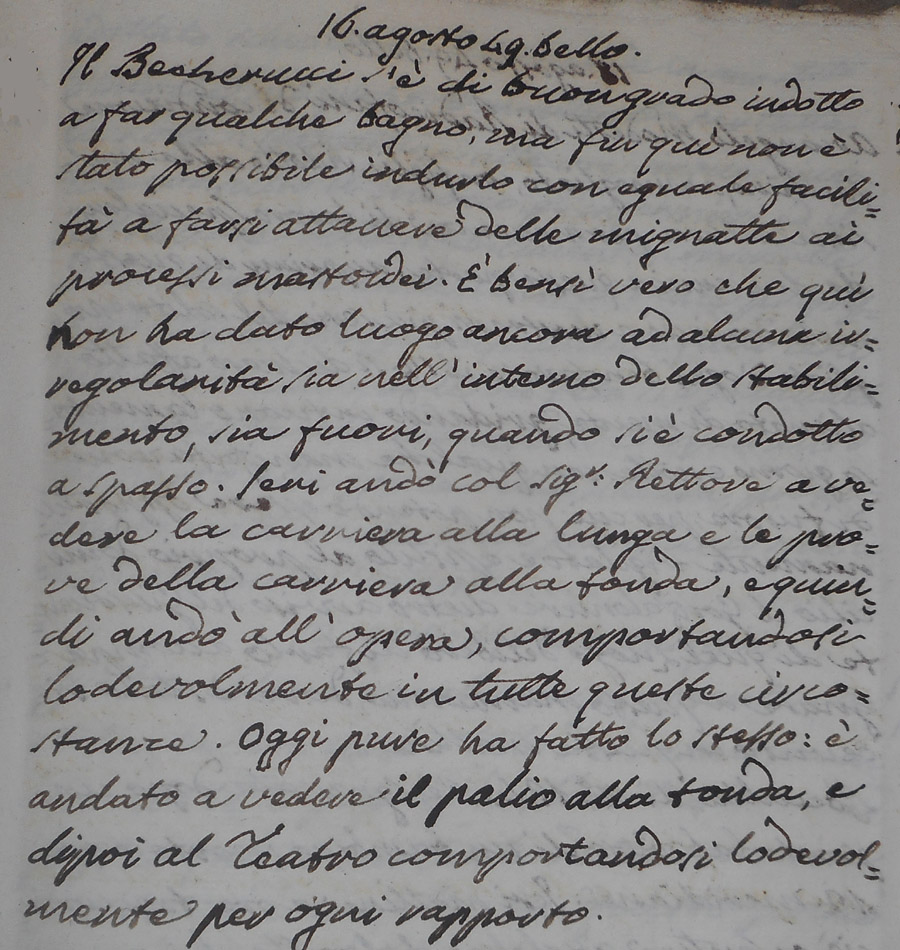 16. agosto 49. bello.
Il Becherucci s'è di buon grado indotto
a far qualche bagno, ma fin qui non è
stato possibile indurlo con eguale facili=
tà a farsi attaccare delle mignatte ai
processi mastoidei. È bensì vero che qui
non ha dato luogo ancora ad alcuna ir=
regolarità sia nell' interno dello stabili=
mento, sia fuori, quando si è condotto
a spasso. Ieri andò col Sigr: Rettore a ve=
dere la carriera alla lunga e le pro=
ve della carriera alla tonda, e quin=
di andò all' opera, comportandosi
lodevolmente in tutte queste circo=
stanze. Oggi pure ha fatto lo stesso: è
andato a vedere il palio alla tonda, e
dipoi al Teatro comportandosi lodevol=
mente per ogni rapporto.